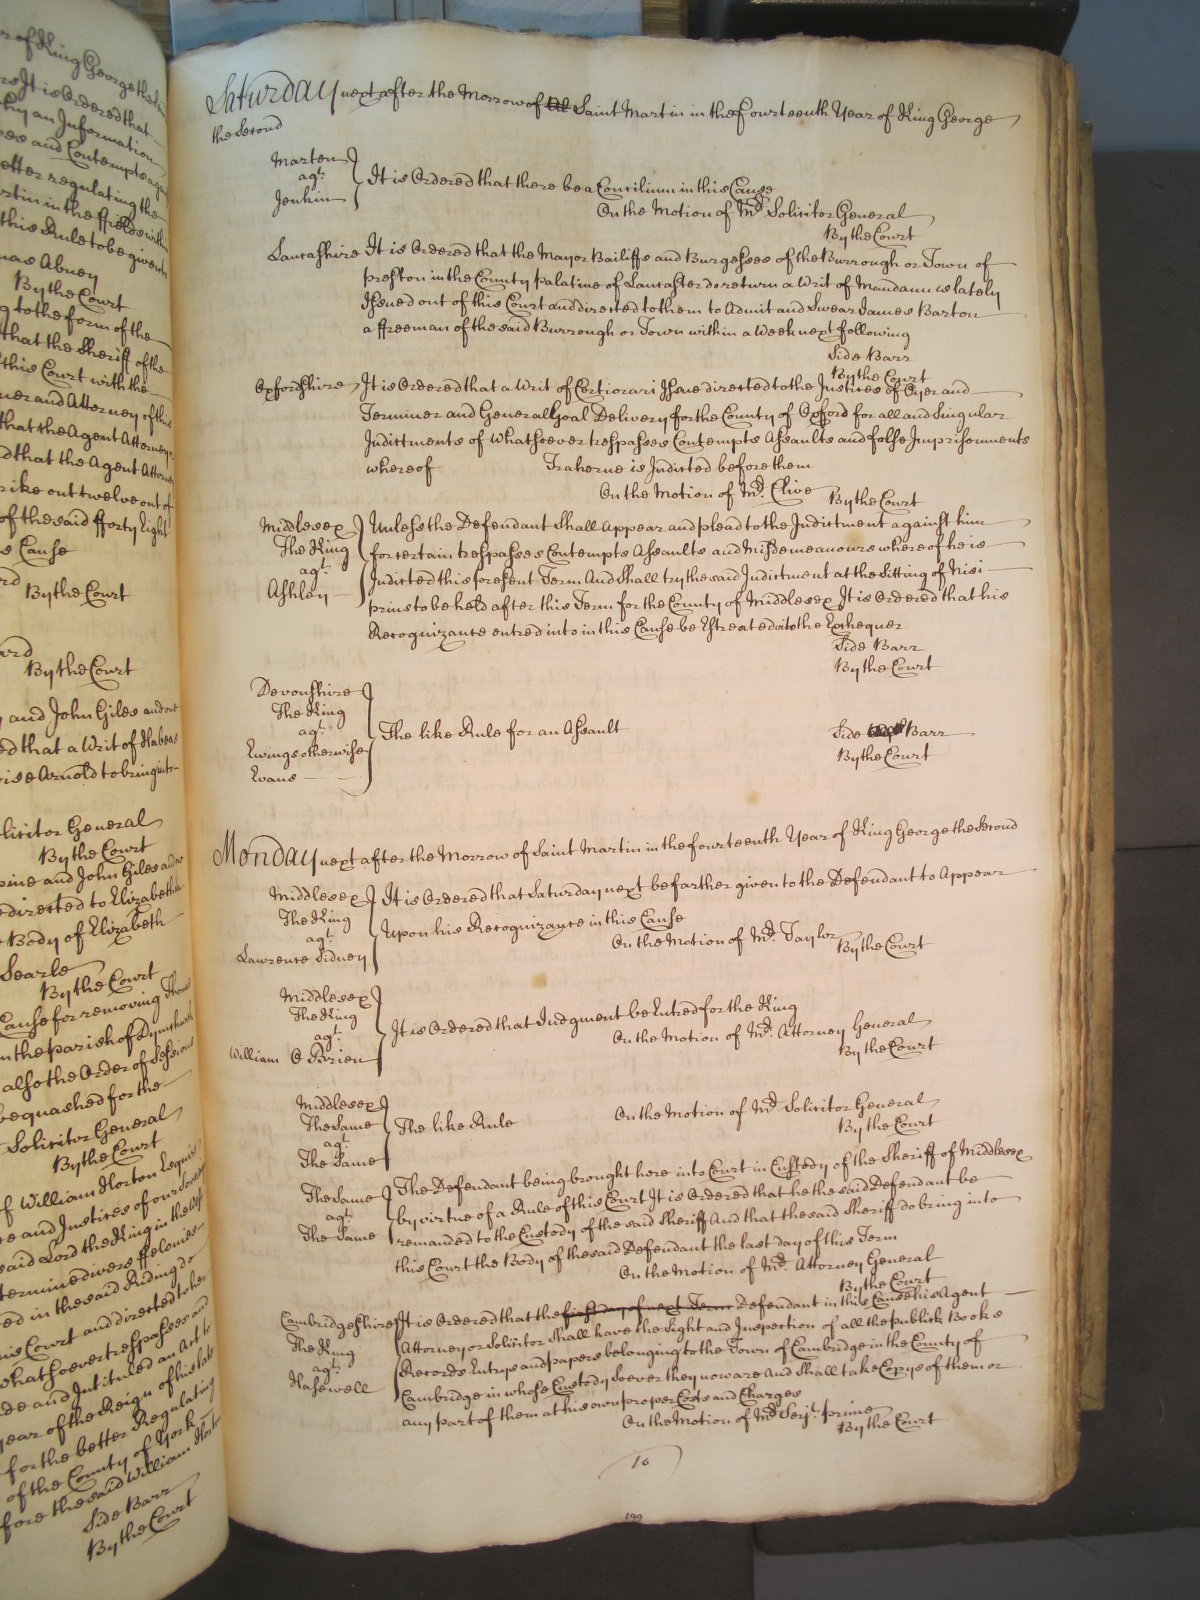 r of King George the
rs It is Ordered that
they an Information
ses and Contempts ag
etter regulating the
rtin in the ffields with
this Rule to be given to
mas Abney
By the Court
g to the form of the
that the Sheriff of the
this Court with the
ner and Attorney of this
that the Agent Attorney
d that the Agent Attorn
rike out twelve out of
of the said fforty Eight
s Cause
rd
By the Court
ard
By the Court
y and John Giles and
ed that a Writ of Habeas
ise Arnold to bring
licitor General
By the Court
ine and John Giles and
directed to Elizabeth
Body of Elizabeth
Searle
By the Court
Cause for removing
m the parish of Dymchurch
also the Order of Sessions
be quashed for the
Solicitor General
By the Court
f William Horton Esquire
e and Justices of our
said Lord the King in the
termine divers ffelonies
ed in the said Riding do
is Court and directed to
whatsoever trespasses and
de and Intituled an Act
year of the Reign of his late
for the better Regulating
of the County of York
fore the said William Horton
Side Barr
By the Court
Saturday next after the Morrow of Saint Martin in the ffourteenth Year of King George
the Second
Marten
agt.
Jenkin
It is Ordered that there be a Concilium in this Cause
On the Motion of Mr. Solicitor General
By the Court
Lancashire It is Ordered that the Mayor Bailiffs and Burgesses of the Burrough or Town of
preston in the County palatine of Lancaster do return a Writ of Mandamus lately
Issued out of this Court and directed to them to Admit and Swear James Barton
a ffreeman of the said Burrough or Town within a Week next following
Side Barr
By the Court
Oxfordshire It is Ordered that a Writ of Certiorari Issue directed to the Justices of Oyer and
Terminer and General Goal Delivery for the County of Oxford for all and Singular
Indictments of whatsoever trespasses Contempts Assaults and false Imprisonments
whereof Traherne is Indicted before them
On the Motion of Mr. Clive
By the Court
Middlesex
The King
agt.
Ashley
Unless the Defendant Shall Appear and plead to the Indictment against him
for certain trespasses Contempts Assaults and Misdemeanours whereof he is
Indicted this present Term And Shall try the said Indictment at the Sitting of Nisi
prius to be held after this Term for the County of Middlesex It is Ordered that his
Recognizance entred into in this Cause be Estreated into the Exchequer
Side Barr
By the Court
Devonshire
The King
agt.
Ewings otherwise
Evans
The like Rule for an Assault
Side Barr
By the Court
Monday next after the Morrow of Saint Martin in the fourteenth Year of King George the Second
Middlesex
The King
agt.
Lawrence Sidney
It is Ordered that Saturday next be farther given to the Defendant to Appear
Upon his Recognizance in this Cause
On the Motion of Mr. Taylor
By the Court
Middlesex
The King
agt.
William O Brien
It is Ordered that Judgment be Entred for the King
On the Motion of Mr. Attorney General
By the Court
Middlesex
The Same
agt.
The Same
The like Rule
On the Motion of Mr. Solicitor General
By the Court
The Same
agt.
The Same
The Defendant being brought here into Court in Custody of the Sheriff of Middlesex
by virtue of a Rule of this Court It is Ordered that he the said Defendant be
remanded to the Custody of the said Sheriff And that the said Sheriff do bring into
this Court the Body of the said Defendant the last day of this Term
On the Motion of Mr. Attorney General
By the Court
Cambridgeshire
The King
agt.
Hasewell
It is Ordered that the first day of next Term Defendant in this Cause his Agent
Attorney or Solicitor Shall have the Sight and Inspection of all the publick Books
Records Entrys and papers belonging to the Town of Cambridge in the County of
Cambridge in whose Custody Soever they now are And Shall take Copys of them or
any part of them at his own proper Costs and Charges
On the Motion of Mr. Serjt. prime
By the Court
10
199